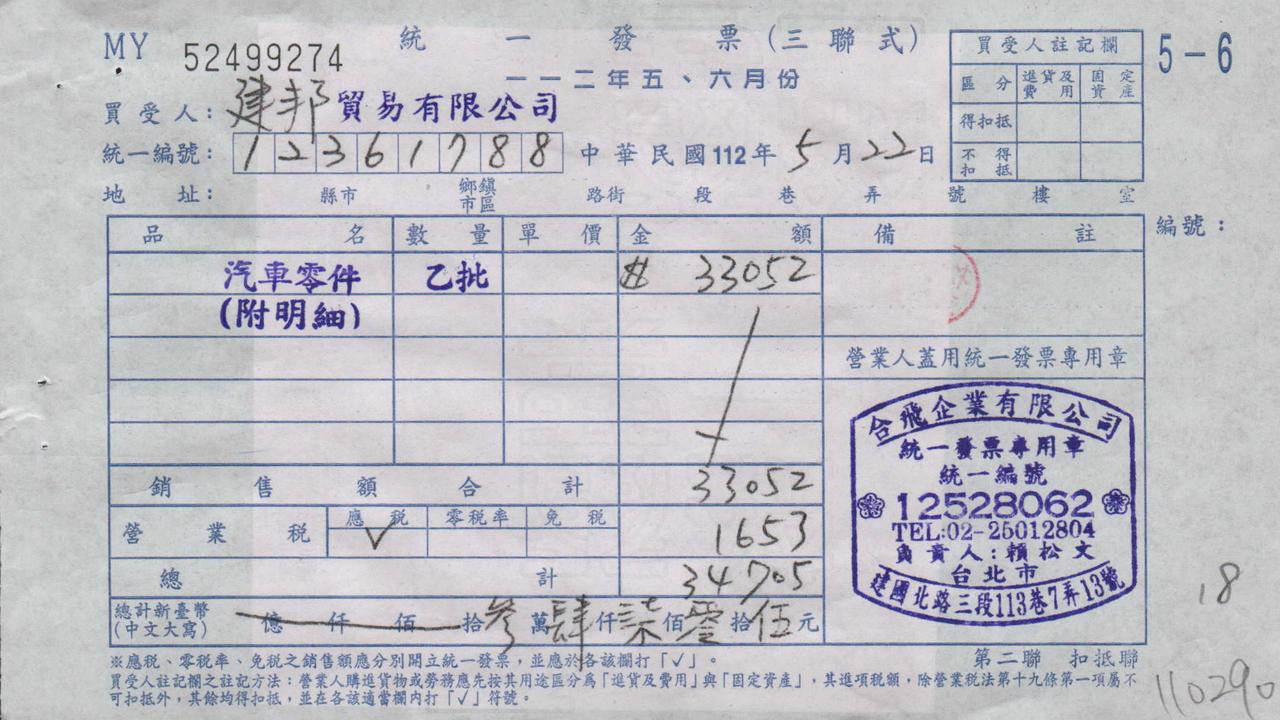 MY 52499274
統一發票(三聯式)
一一二年五、六月份
5-6
買受人註記欄
區分 進貨及費用 固定資產
得扣抵
不得扣抵
買受人:建邦貿易有限公司
統一編號:12361788 中華民國112年5月22日
地址: 縣市 鄉鎮市區 路街 段 巷 弄 號 樓 室
編號:
品名 數量 單價 金額 備註
汽車零件 乙批 $ 33052
(附明細)
營業人蓋用統一發票專用章
銷售額合計 33052
營業稅 應稅 ✓ 零稅率 免稅 1653
總計 34705
總計新臺幣(中文大寫) 億 仟 佰 拾 參 萬 肆 仟 柒 佰 零 拾 伍 元
合飛企業有限公司
統一發票專用章
統一編號
12528062
TEL:02-25012804
負責人:賴松文
台北市
建國北路三段113巷7弄13號
18
第二聯 扣抵聯
※應稅、零稅率、免稅之銷售額應分別開立統一發票,並應於各該欄打「✓」。
買受人註記欄之註記方法:營業人購進貨物或勞務應先按其用途區分為「進貨及費用」與「固定資產」,其進項稅額,除營業稅法第十九條第一項屬不
可扣抵外,其餘均得扣抵,並在各該適當欄內打「✓」符號。
110290